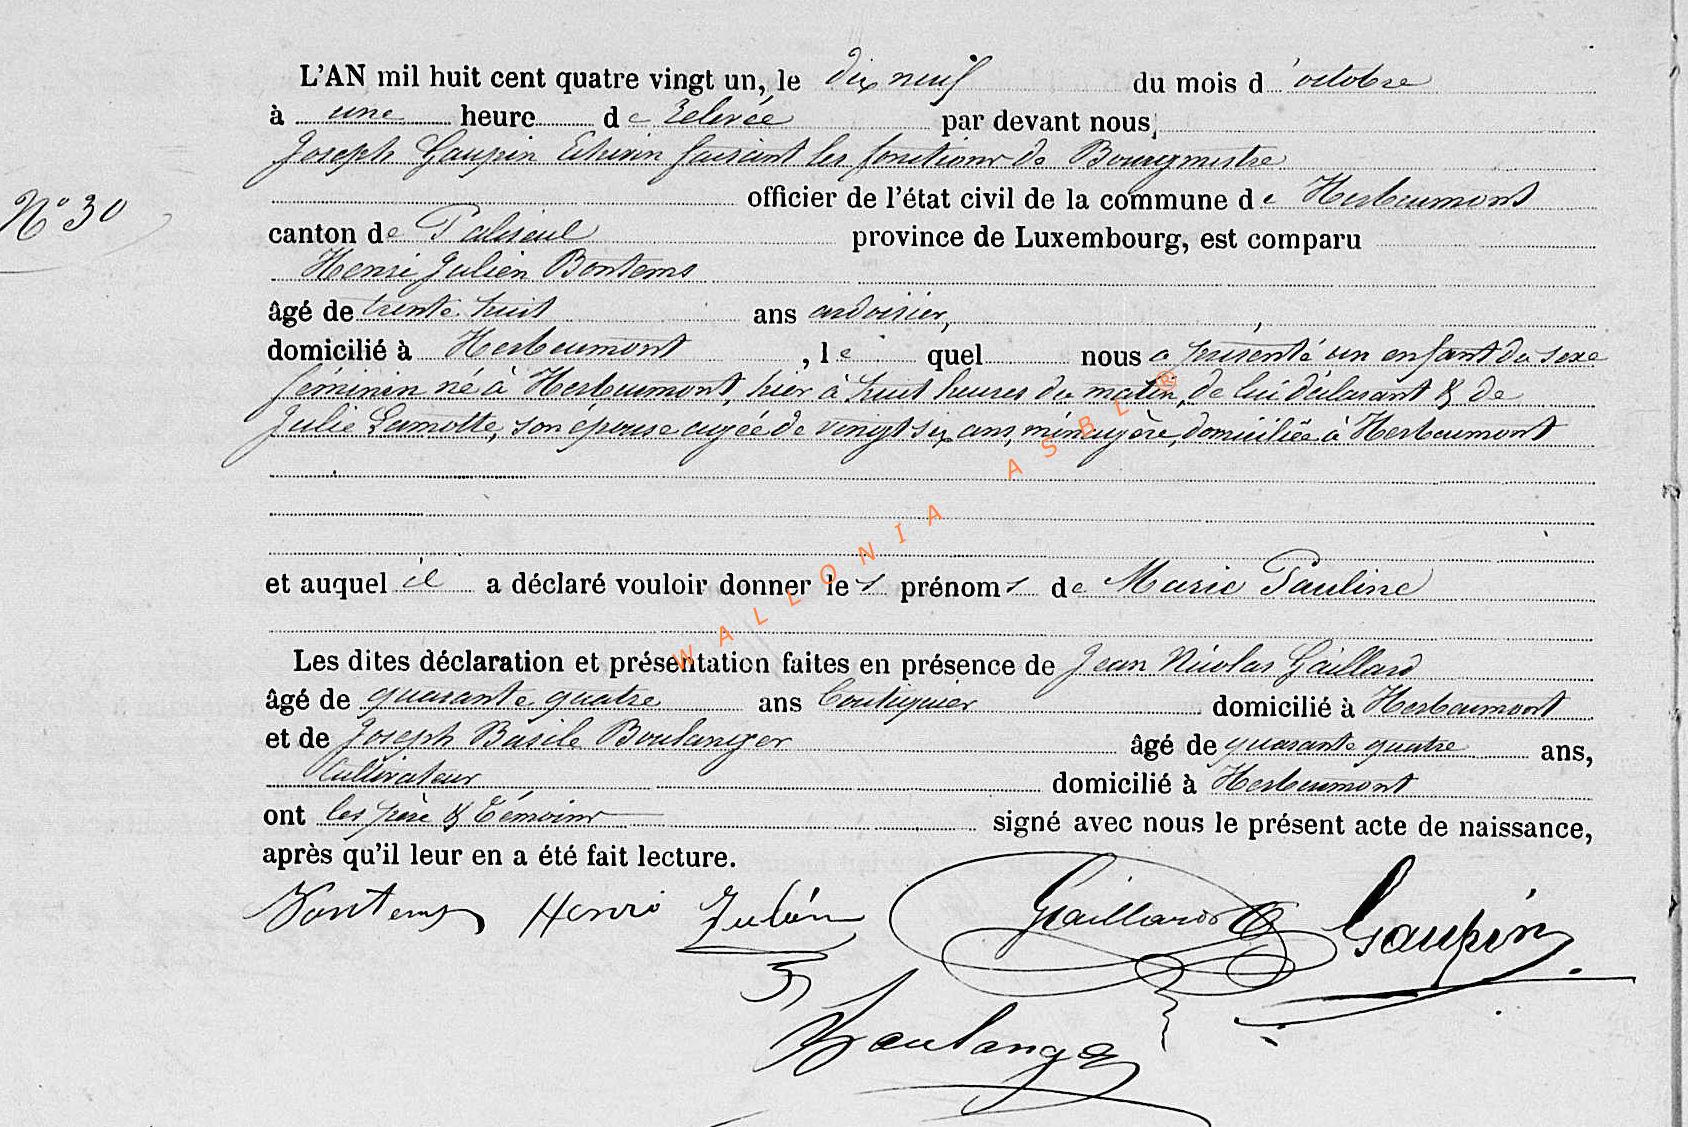 L'AN mil huit cent quatre vingt un, le dix neuf du mois d'octobre
à une heure de relevée par devant nous,
Joseph Gaupin Echevin faisant les fonctions de Bourgmestre
N° 30
officier de l'état civil de la commune de Herbeumont
canton de Paliseul province de Luxembourg, est comparu
Henri Julien Bontems
âgé de trente huit ans ardoisier,
domicilié à Herbeumont, le quel nous a présenté un enfant du sexe
féminin né à Herbeumont, hier à huit heures du matin, de lui déclarant & de
Julie Lamotte, son épouse agée de vingt six ans, ménagère, domiciliée à Herbeumont
et auquel il a déclaré vouloir donner les prénoms de Marie Pauline
Les dites déclaration et présentation faites en présence de Jean Nicolas Gaillard
âgé de quarante quatre ans Boutiquier domicilié à Herbeumont
et de Joseph Basile Boulanger âgé de quarante quatre ans,
Cultivateur domicilié à Herbeumont
ont les père & témoins signé avec nous le présent acte de naissance,
après qu'il leur en a été fait lecture.
Bontems Henri Julién Gaillard Gaupin
J Boulanger
WALLONIA ASBL ®